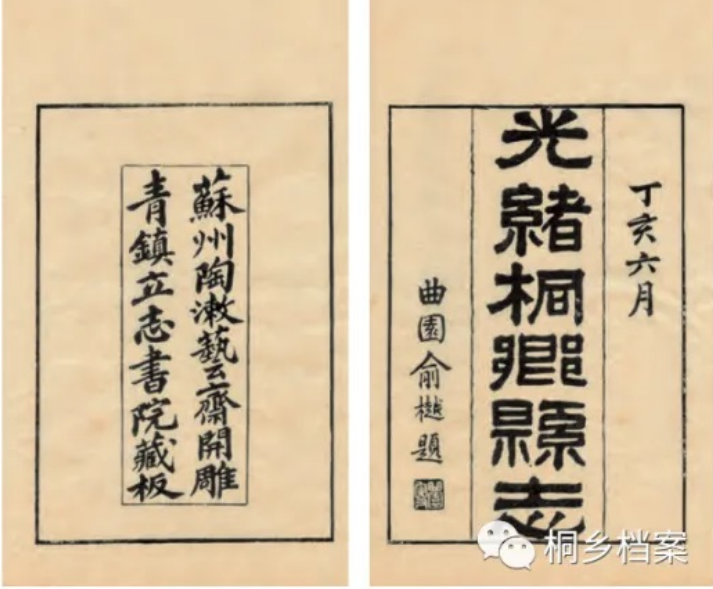 丁亥六月
光緒桐鄉縣志
曲園俞樾題
蘇州陶漱藝齋開雕
青鎮立志書院藏板
桐乡档案